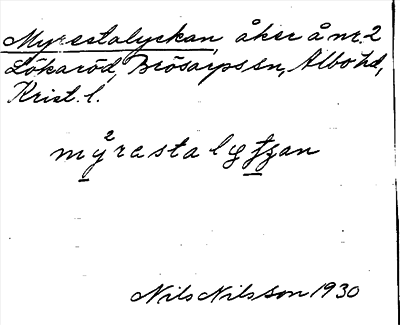 Myrestalyckan, åker å nr. 2
Lökaröd, Brösarps sn, Albo hd,
Krist. l.
2
mÿrasta lyţʒan
Nils Nilsson 1930